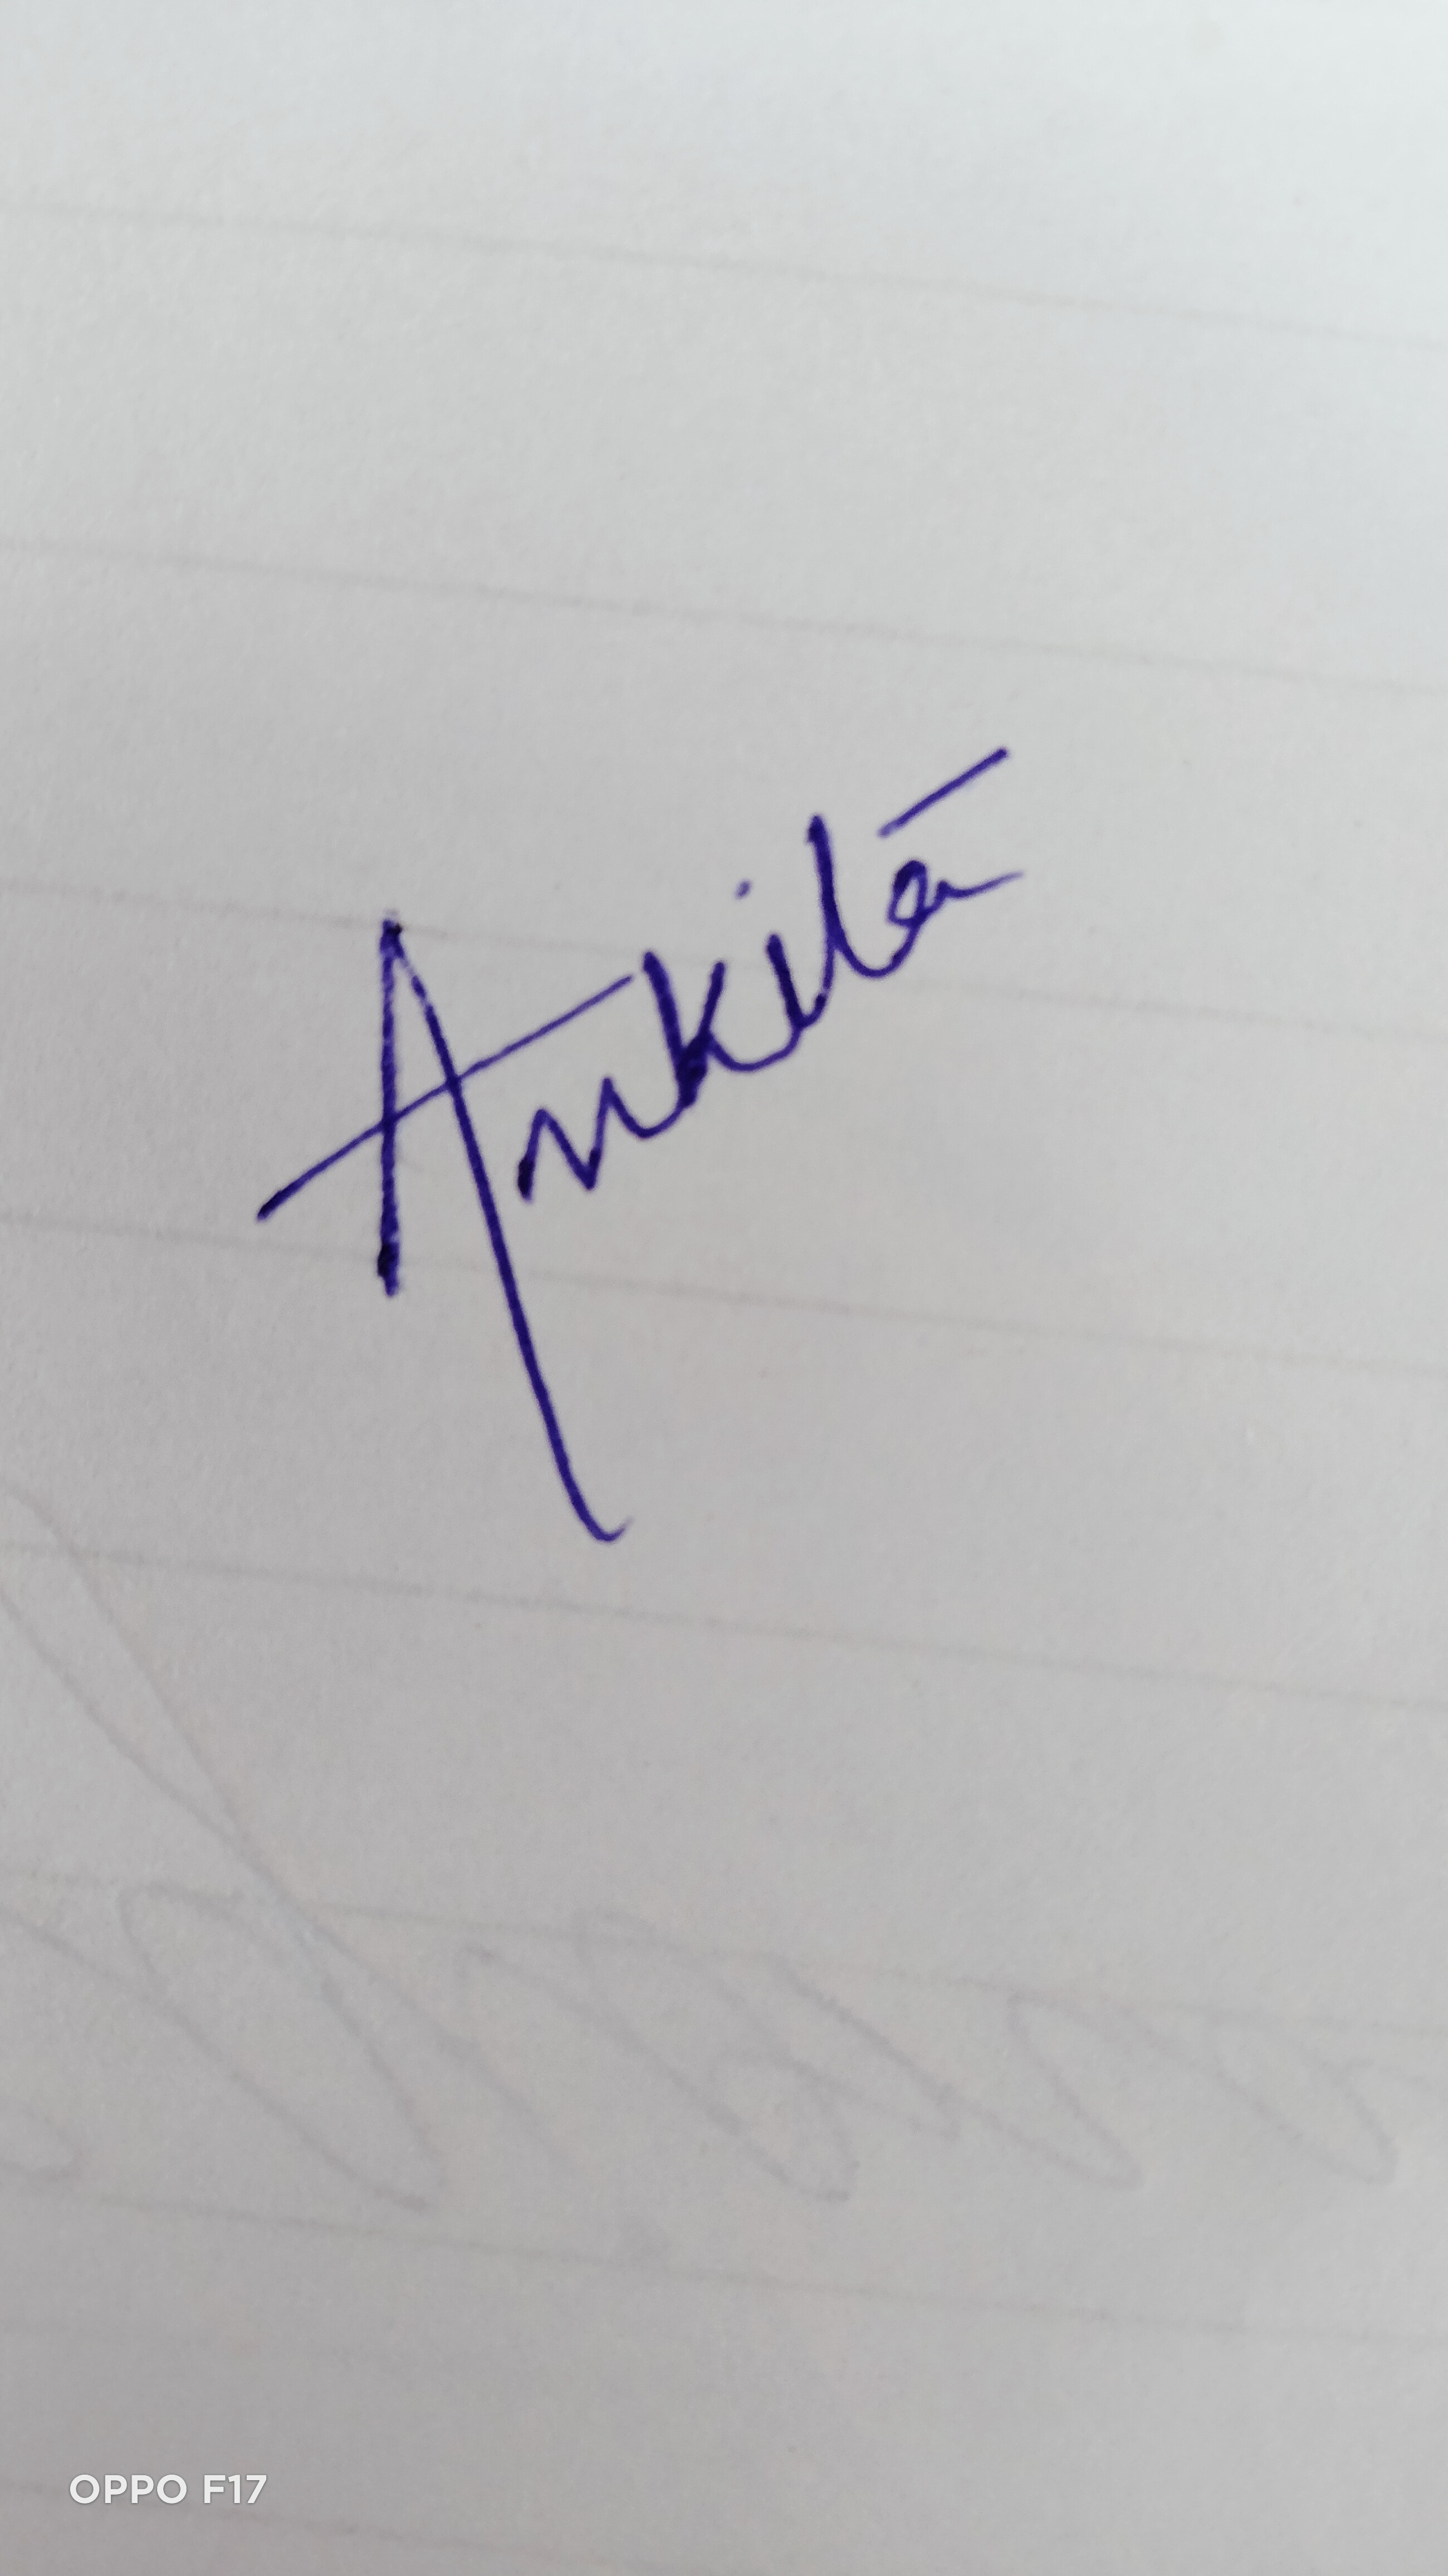 Ankita
OPPO F17